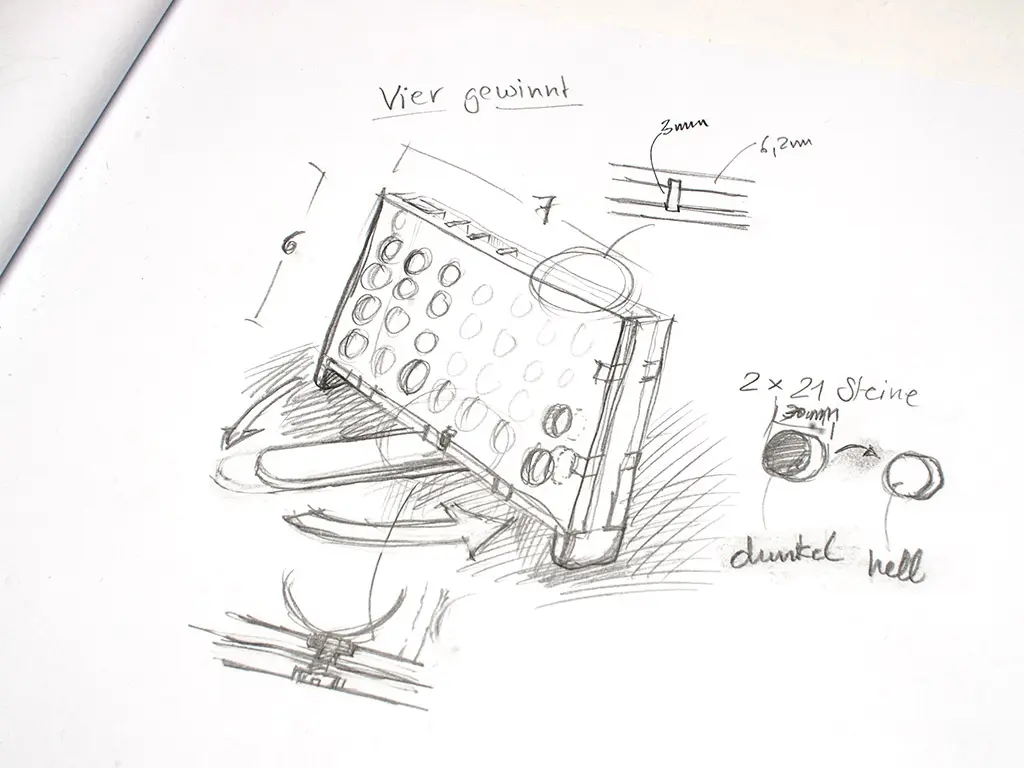 Vier gewinnt
3mm
6,2mm
7
6
2 x 21 Steine
30mm
dunkel
hell